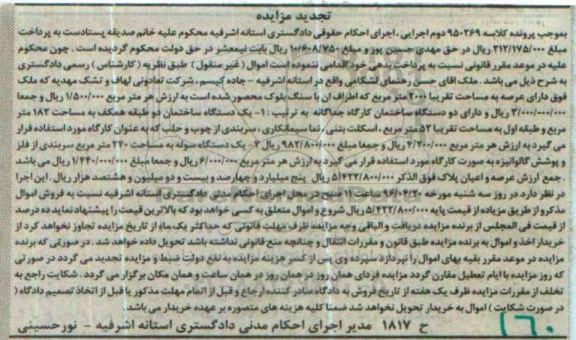 تجدید مزایده
بموجب پرونده کلاسه ۹۵۰۲۶۹ دوم اجرایی ، اجرای احکام حقوقی دادگستری استانه اشرفیه محکوم علیه خانم صدیقه پستادست به پرداخت
مبلغ ۲۱۲/۱۷۵/۰۰۰ ریال در حق مهدی حسین پور و مبلغ ۱۰/۶۰۸/۷۵۰ ریال بابت نیمعشر در حق دولت محکوم گردیده است . چون محکوم
علیه در موعد مقرر قانونی نسبت به پرداخت بدهی خود اقدامی ننموده است اموال ( غیر منقول ) طبق نظریه ( کارشناس ) رسمی دادگستری
به شرح ذیل می باشد . ملک اقای حسن رهنمای لشکامی واقع در استانه اشرفیه - جاده کیسم ، شرکت تعادونی لهاف و تشک مهدیه که ملک
فوق دارای عرصه به مساحت تقریبا ۲۰۰۰ متر مربع که اطراف ان با سنگ بلوک محصور شده است به ارزش هر متر مربع ۱/۵۰۰/۰۰۰ ریال و جمعا
۳/۰۰۰/۰۰۰/۰۰۰ ریال و دارای دو دستگاه ساختمان کارگاه جداگانه به ترتیب : ۱- یک دستگاه ساختمان دو طبقه همکف به مساحت ۱۸۲ متر
مربع و طبقه اول به مساحت تقریبا ۵۲ متر مربع ، اسکلت بتنی ، نما سیمانکاری ، سربندی از چوب و حلب که به عنوان کارگاه مورد استفاده قرار
می گیرد به ارزش هر متر مربع ۴/۲۰۰/۰۰۰ ریال و جمعا مبلغ ۹۸۲/۸۰۰/۰۰۰ ریال ۲- یک دستگاه سوله به مساحت ۲۴۰ متر مربع سربندی از فلز
و پوشش گالوانیزه به صورت کارگاه مورد استفاده قرار می گیرد به ارزش هر متر مربع ۶/۰۰۰/۰۰۰ ریال و جمعا مبلغ ۱/۴۴۰/۰۰۰/۰۰۰ ریال می باشد
. جمع ارزش عرصه و اعیان پلاک فوق الذکر ۵/۴۲۲/۸۰۰/۰۰۰ ریال پنج میلیارد و چهارصد و بیست و دو میلیون و هشتصد هزار ریال . این اجرا
در نظر دارد در روز سه شنبه مورخه ۹۶/۰۴/۲۰ ساعت ۱۱ صبح در محل اجرای احکام مدنی دادگستری استانه اشرفیه نسبت به فروش اموال
مذکور از طریق مزیاده از قیمت پایه ۵/۴۲۲/۸۰۰/۰۰۰ ریال شروع و اموال متعلق به کسی خواهد بود که بالاترین قیمت را پیشنهاد نماید ده درصد
از قیمت فی المجلس از برنده مزایده دریافت و الباقی وجه مزایده ظرف مهلت قانونی که حداکثر یک ماه از تاریخ مزایده تجاوز نخواهد کرد از
خریدار اخذ و اموال به برنده مزایده طبق قانون و مقررات انتقال و چنانچه منع قانونی نداشته باشد تحویل داده خواهد شد . در صورتی که برنده
مزایده در موعد مقرر بقیه بهای اموال را نپردازد سپرده وی پس از کسر هزینه مزایده به نفع دولت ضبط و مزایده تجدید می گردد در صورتی
که روز مزایده با ایام تعطیل مقارن گردد مزایده فردای همان روز در همان روز در همان ساعت و همان مکان برگزار می گردد . شکایت راجع به
تخلف از مقررات مزایده ظرف یک هفته از تاریخ فروش به دادگاه صادر کننده ارجاع و قبل از اتمام مهلت مذکور یا قبل از اتخاذ تصمیم دادگاه (
در صورت شکایت ) اموال به خریدار تحویل نخواهد شد ضمنا کلیه هزینه های متصوره بر عهده خریدار می باشد.
ح ۱۸۱۷ مدیر اجرای احکام مدنی دادگستری استانه اشرفیه - نورحسینی
۱۶۰